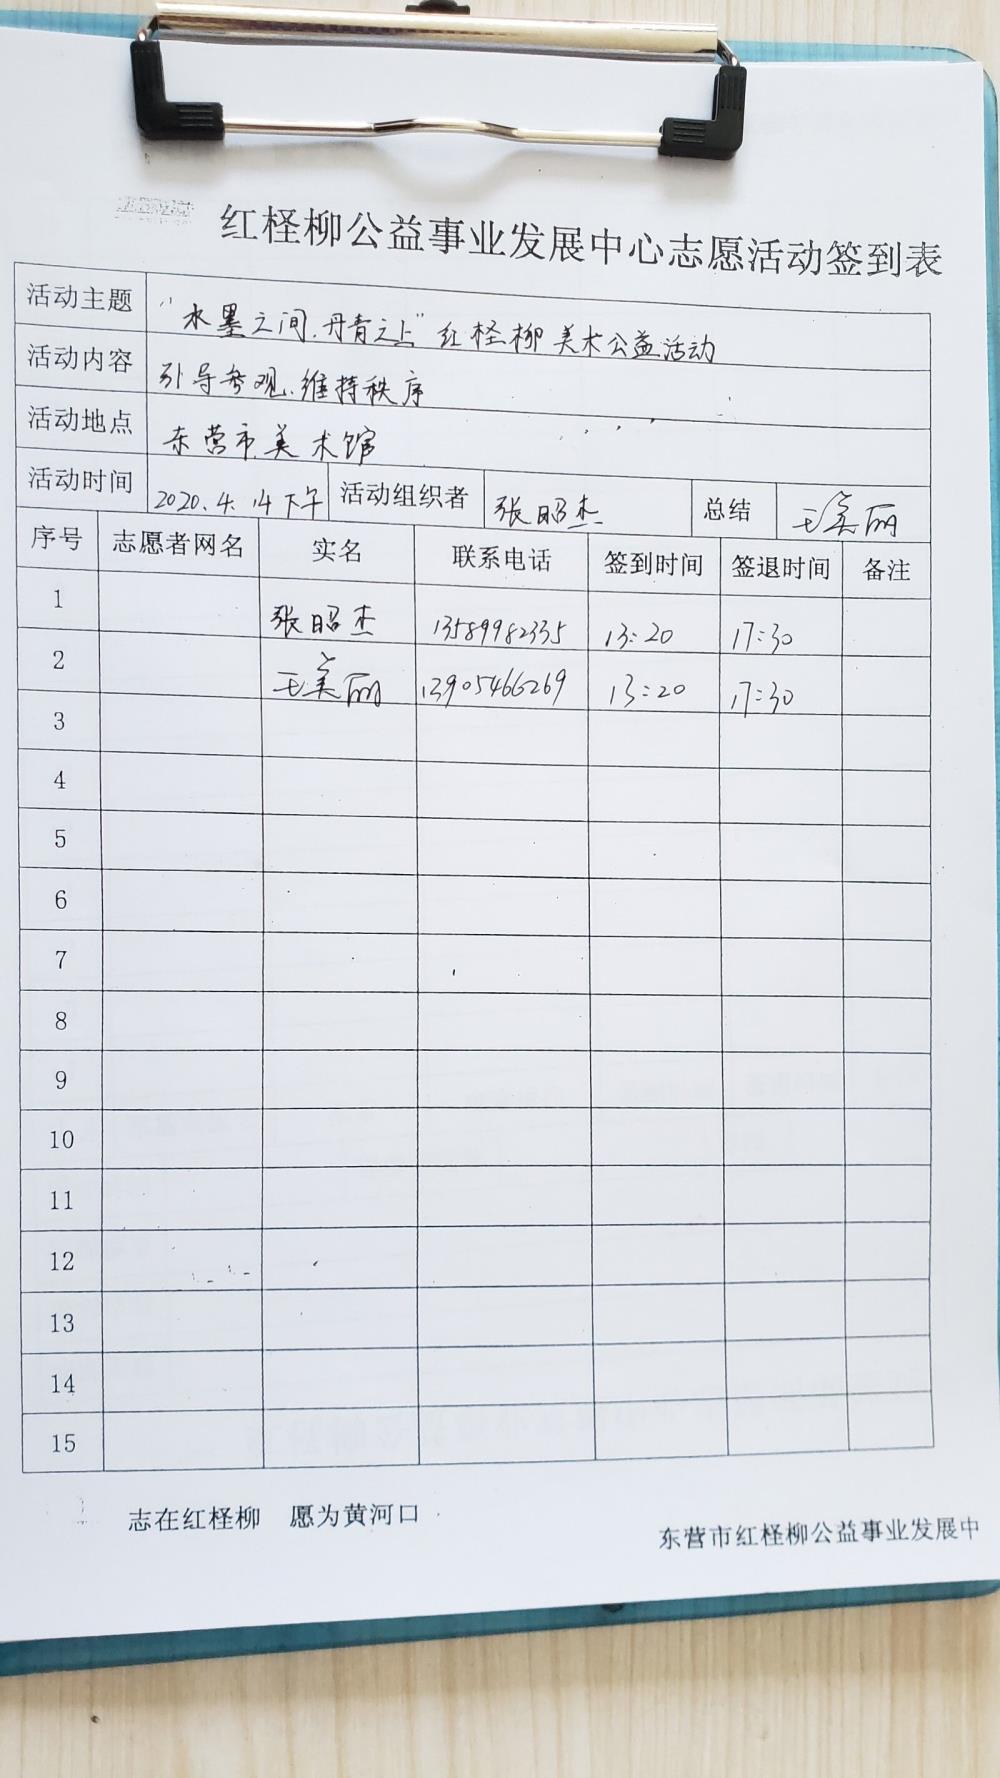 红柽柳公益事业发展中心志愿活动签到表
活动主题 "水墨之间.丹青之上"红柽柳美术公益活动
活动内容 引导参观.维持秩序
活动地点 东营市美术馆
活动时间 2020.4.14下午 活动组织者 张昭杰 总结 王美丽
序号 志愿者网名 实名 联系电话 签到时间 签退时间 备注
1 张昭杰 13589982335 13:20 17:30
2 王美丽 13905466269 13:20 17:30
3
4
5
6
7
8
9
10
11
12
13
14
15
志在红柽柳 愿为黄河口
东营市红柽柳公益事业发展中